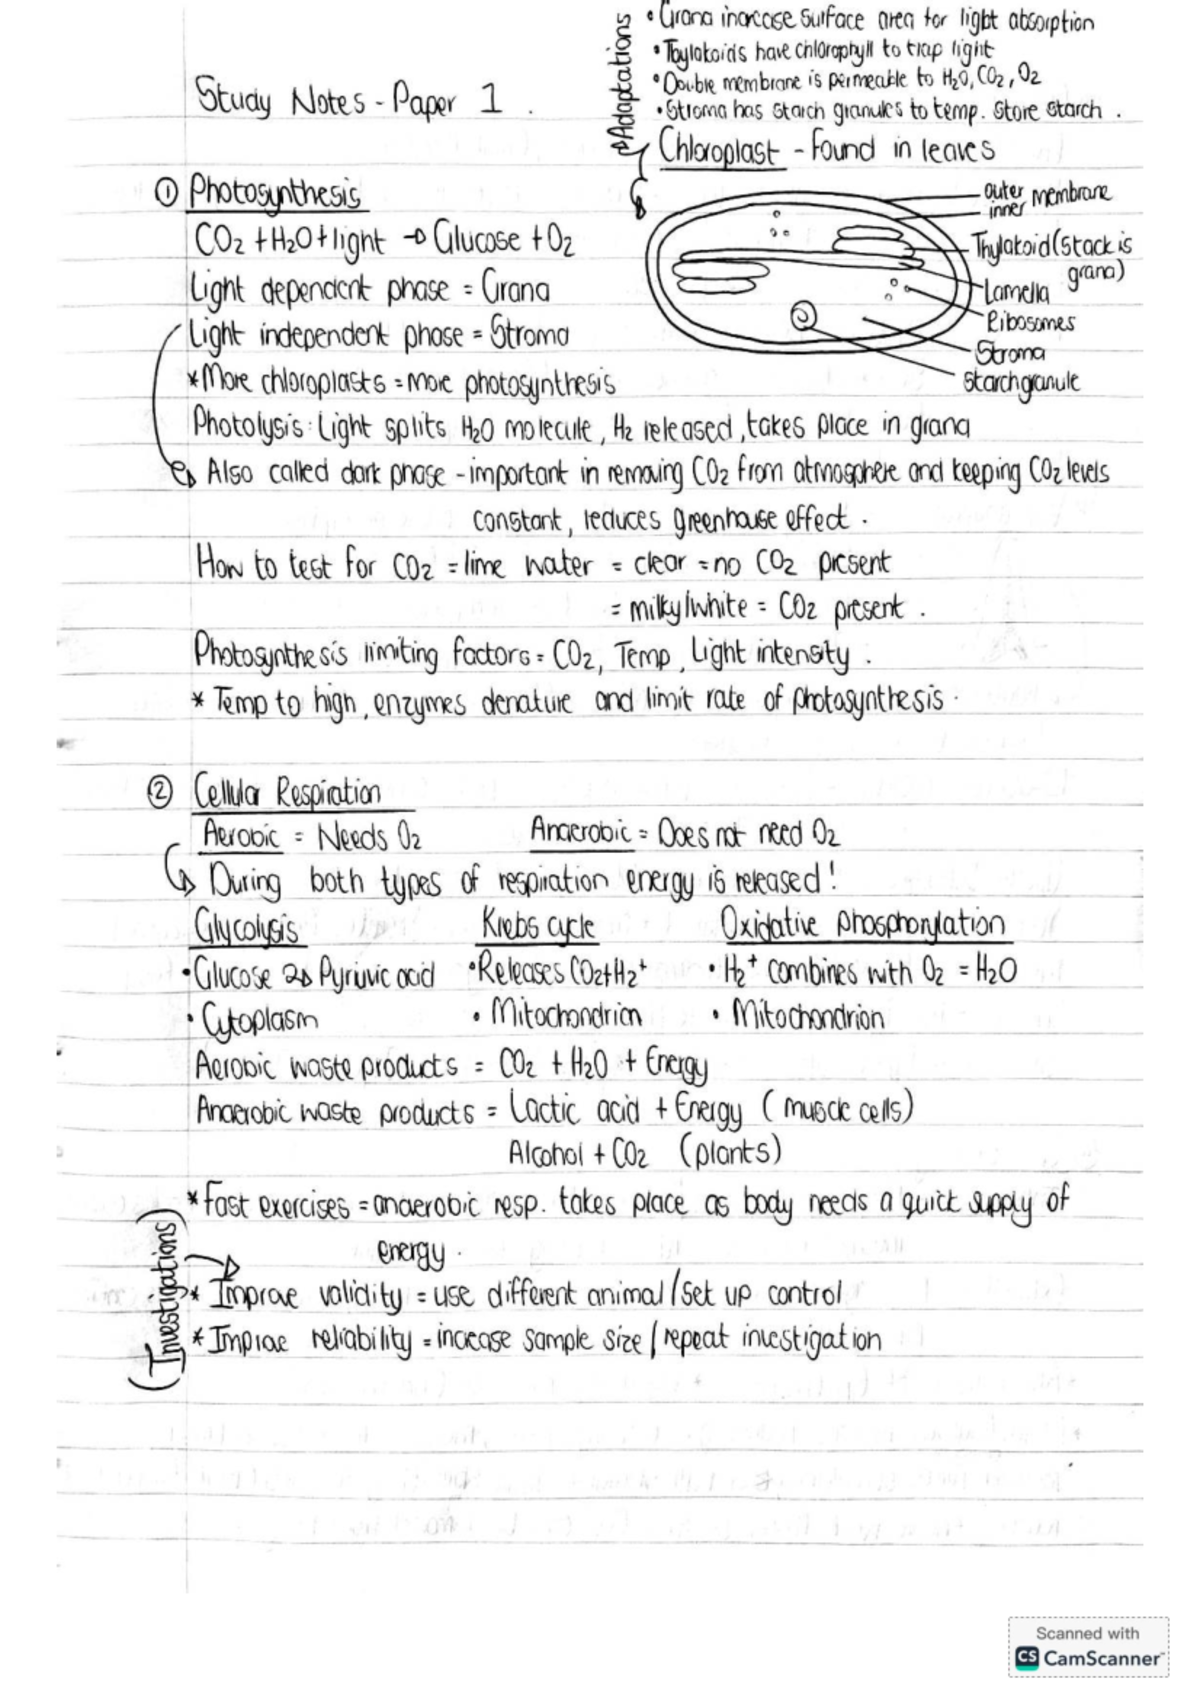 Adaptations
• Grana increase surface area for light absorption
• Thylakoids have chlorophyll to trap light
• Double membrane is permeable to H₂O, CO₂, O₂
• Stroma has starch granules to temp. store starch .
Study Notes - Paper 1 .
Chloroplast - Found in leaves
outer membrane
inner
Thylakoid (stack is
grana)
Lamella
Ribosomes
Stroma
starch granule
① Photosynthesis
CO₂ + H₂O + light → Glucose + O₂
Light dependent phase = Grana
Light independent phase = Stroma
* More chloroplasts = more photosynthesis
Photolysis: Light splits H₂O molecule, H₂ released, takes place in grana
↳ Also called dark phase - important in removing CO₂ from atmosphere and keeping CO₂ levels
constant, reduces greenhouse effect .
How to test for CO₂ = lime water = clear = no CO₂ present
= milky/white = CO₂ present .
Photosynthesis limiting factors = CO₂, Temp, Light intensity .
* Temp to high, enzymes denature and limit rate of photosynthesis .
② Cellular Respiration
Aerobic = Needs O₂ Anaerobic = Does not need O₂
↳ During both types of respiration energy is released!
Glycolysis Krebs cycle Oxidative phosphorylation
• Glucose → Pyruvic acid • Releases CO₂ + H₂⁺ • H₂⁺ combines with O₂ = H₂O
• Cytoplasm • Mitochondrion • Mitochondrion
Aerobic waste products = CO₂ + H₂O + Energy
Anaerobic waste products = Lactic acid + Energy (muscle cells)
Alcohol + CO₂ (plants)
* Fast exercises = anaerobic resp. takes place as body needs a quick supply of
energy .
(Investigations)
* Improve validity = use different animal / set up control
* Improve reliability = increase sample size / repeat investigation
Scanned with
CS CamScanner